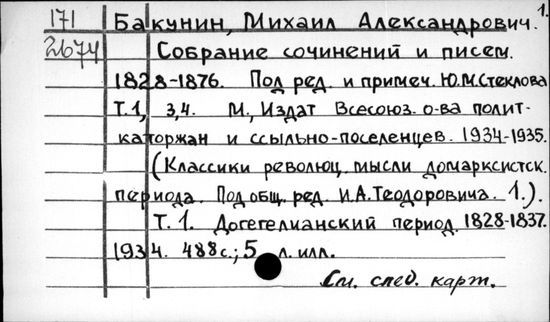 171 Бакунин, Михаил Александрович. 1.
2674 Собрание сочинений и писем.
1828-1876. Под ред. и примеч. Ю.М.Стеклова
Т.1, 3,4. М., Издат Всесоюз. о-ва полит-
каторжан и ссыльно-поселенцев. 1934-1935.
(Классики революц. мысли домарксистск.
периода. Под общ. ред. И.А.Теодоровича. 1.).
Т. 1. Догегелианский период. 1828-1837.
1934. 488с.; 5 л. илл.
См. след. карт.